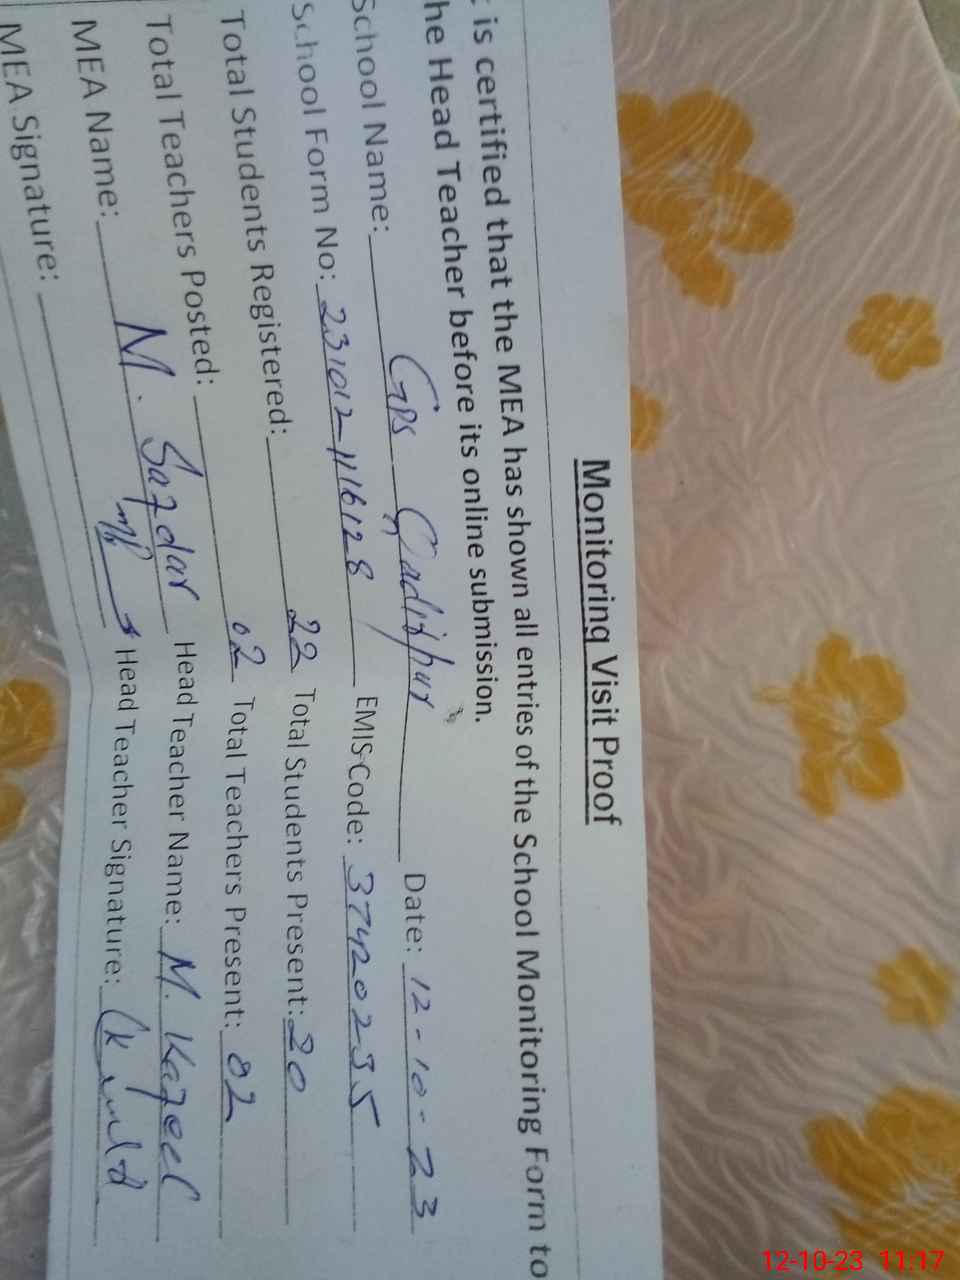 Monitoring Visit Proof
is certified that the MEA has shown all entries of the School Monitoring Form to
he Head Teacher before its online submission.
School Name: GPS Qadirpur Date: 12-10-23
School Form No: 231012416128 EMIS Code: 37420235
Total Students Registered: 22 Total Students Present: 20
Total Teachers Posted: 02 Total Teachers Present: 02
MEA Name: M. Safdar Head Teacher Name: M. Kafeel
MEA Signature: Head Teacher Signature:
12-10-23 11:17